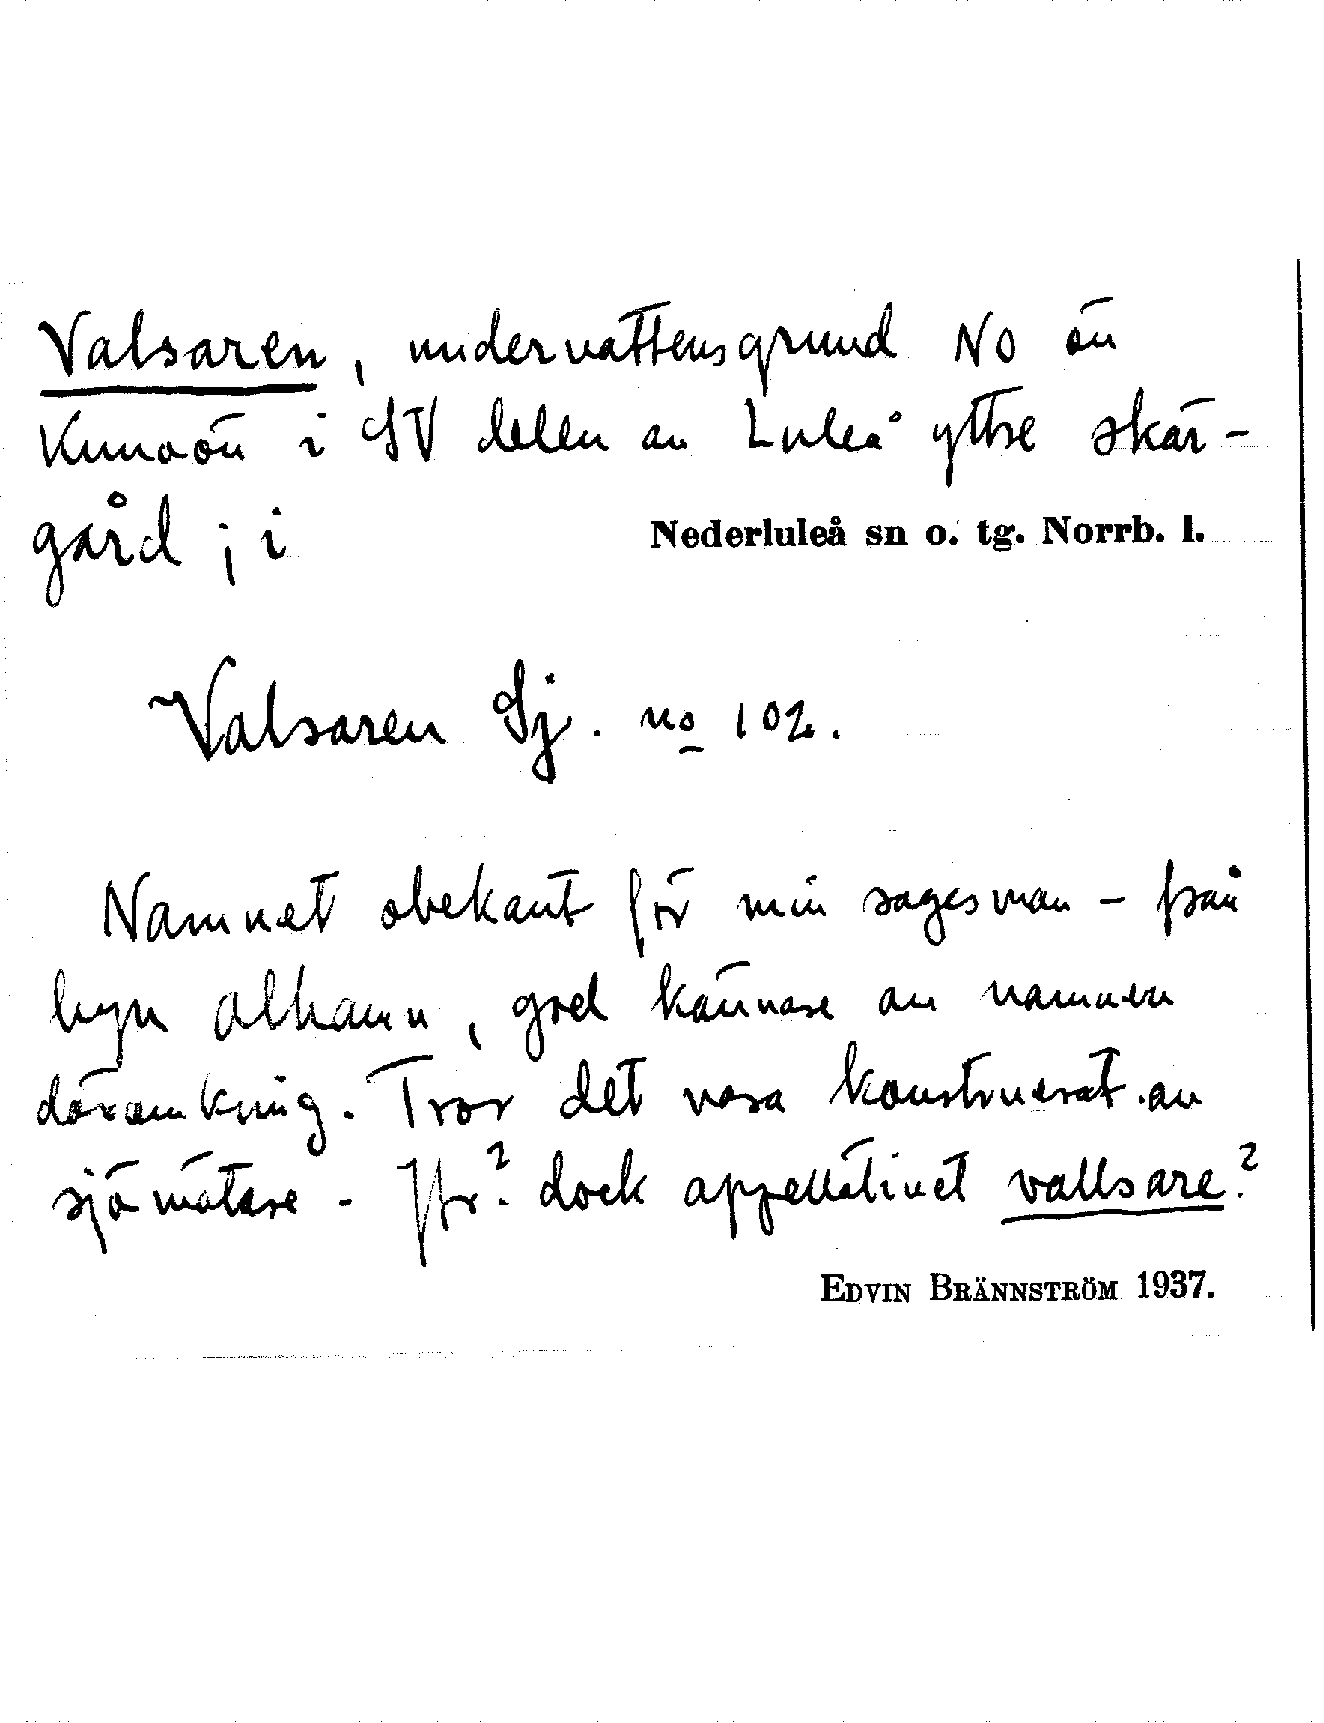 Valsaren, undervattensgrund NO ön
Kunoön i SV delen av Luleå yttre skär-
gård; i Nederluleå sn o. tg. Norrb. l.
Valsaren Sj. no 102.
Namnet obekant för min sagesman - från
byn Alhamn, god kännare av namnen
däromkring. Tror det vara konstruerat av
sjömätare - Jfr? dock appellativet vallsare?
EDVIN BRÄNNSTRÖM 1937.